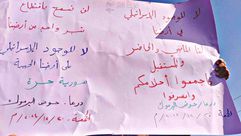 لن نسمح باقتطاع
شبر واحد من أرضنا
لا للوجود الاسرائيلي
على أرضنا الحبيبة
سورية حرة
درعا - حوض اليرموك
لا للوجود الاسرائيلي
في أرضنا
لنا الماضي والحاضر
والمستقبل
فاجمعوا أحلامكم
وانصرفوا
درعا - حوض اليرموك